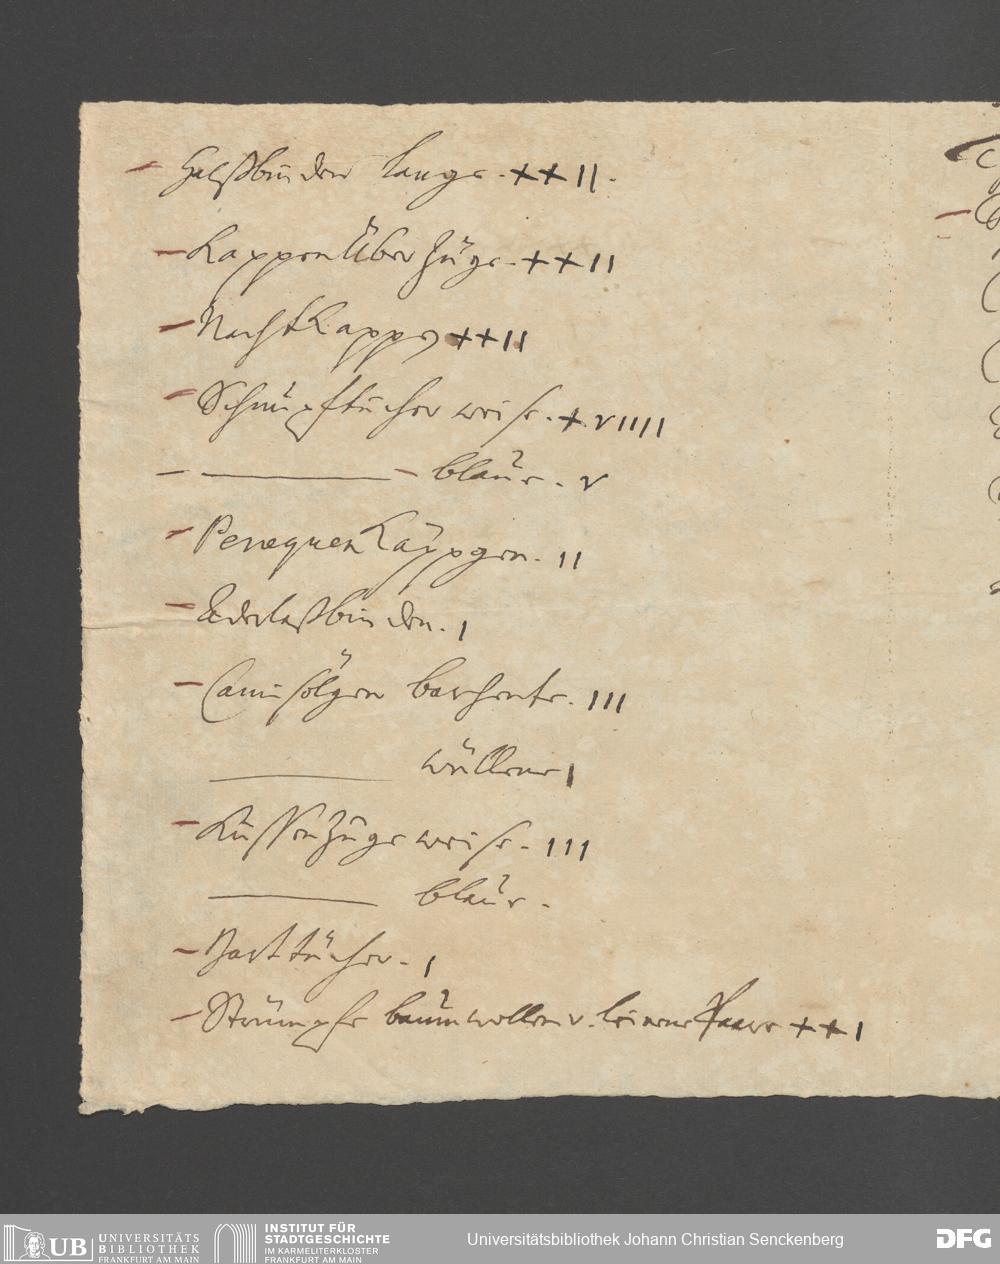 – Halßbinden lange. ++II.
– KappenÜberzüge. ++II
– NachtKappen ++II
– Schnüpftücher weise. +.VIIII
– ——— – blaue. V
– PerequenKäppgen. II
– Aderlaßbinden. I
– Camisölgen barchente. III
——— wüllene I
– Küssenzüge weise. III
——— blaue.
– Barttücher. I
– Strümpfe baumwollen u. leinene Paare ++I
UB UNIVERSITÄTS
BIBLIOTHEK
FRANKFURT AM MAIN
INSTITUT FÜR
STADTGESCHICHTE
IM KARMELITERKLOSTER
FRANKFURT AM MAIN
Universitätsbibliothek Johann Christian Senckenberg
DFG